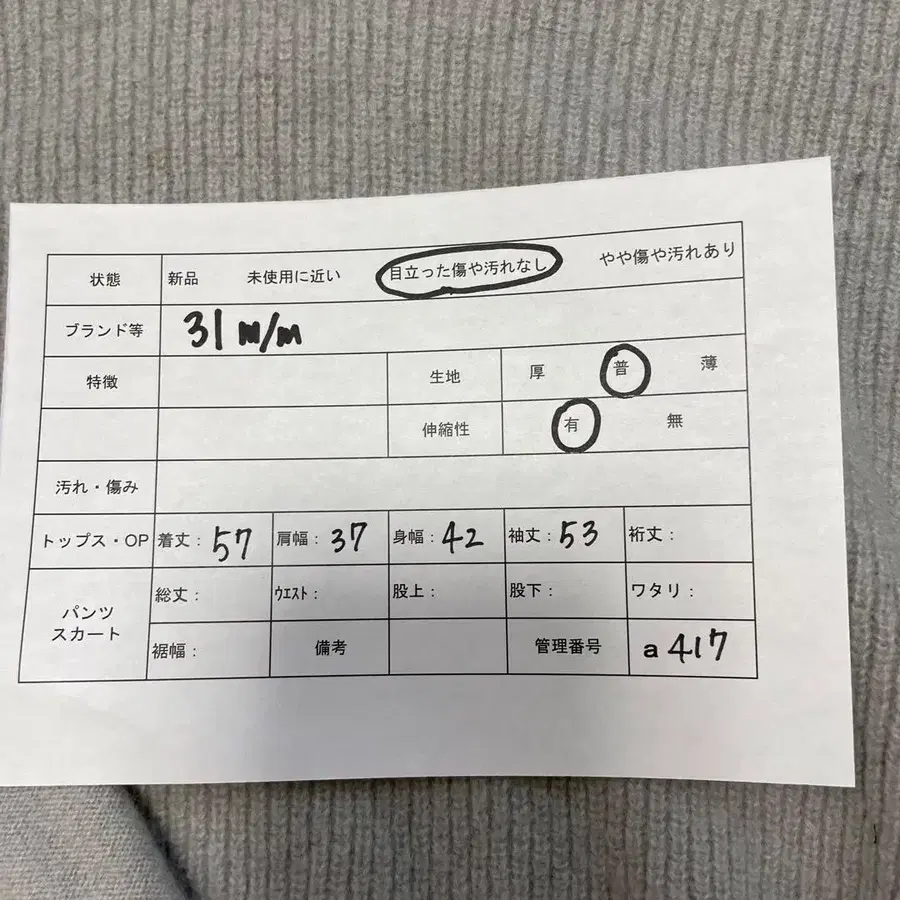 状態 新品 未使用に近い 目立った傷や汚れなし やや傷や汚れあり
ブランド等 31 m/m
特徴 生地 厚 普 薄
伸縮性 有 無
汚れ・傷み
トップス・OP 着丈: 57 肩幅: 37 身幅: 42 袖丈: 53 裄丈:
パンツ スカート 総丈: ウエスト: 股上: 股下: ワタリ:
裾幅: 備考 管理番号 a 417